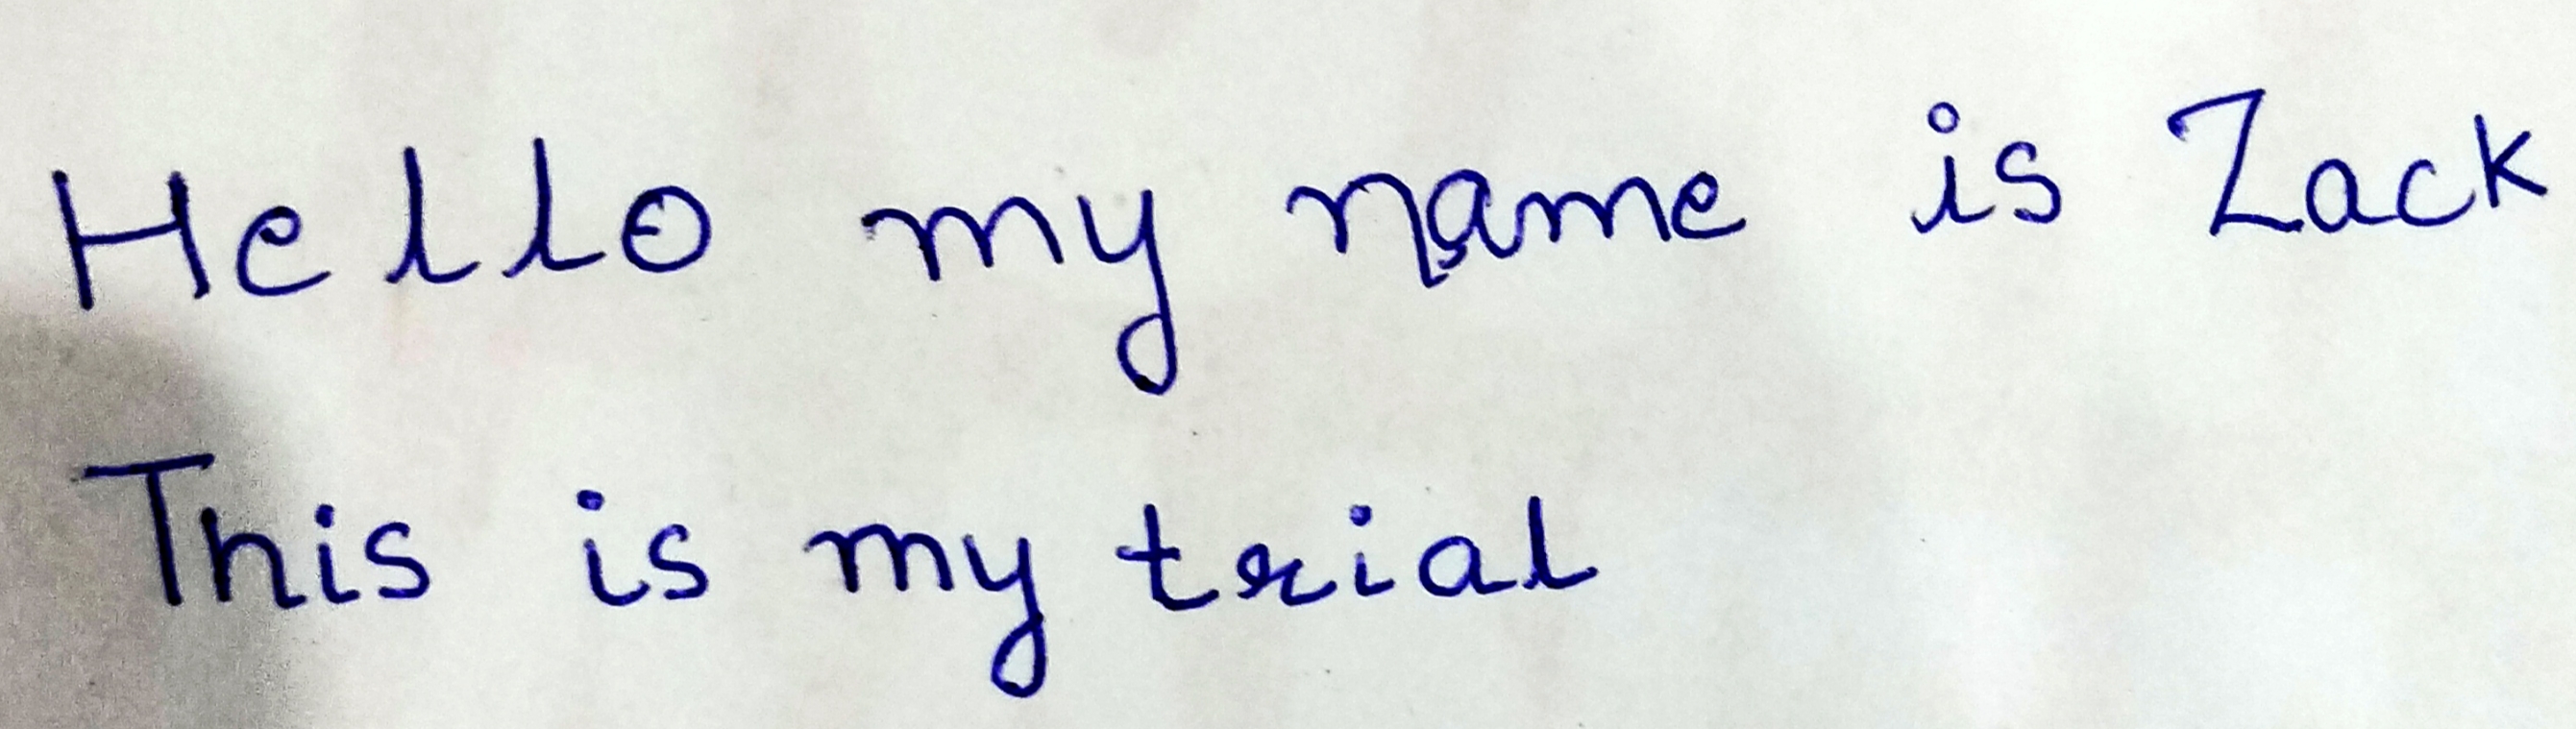 Hello my name is Zack
This is my trial